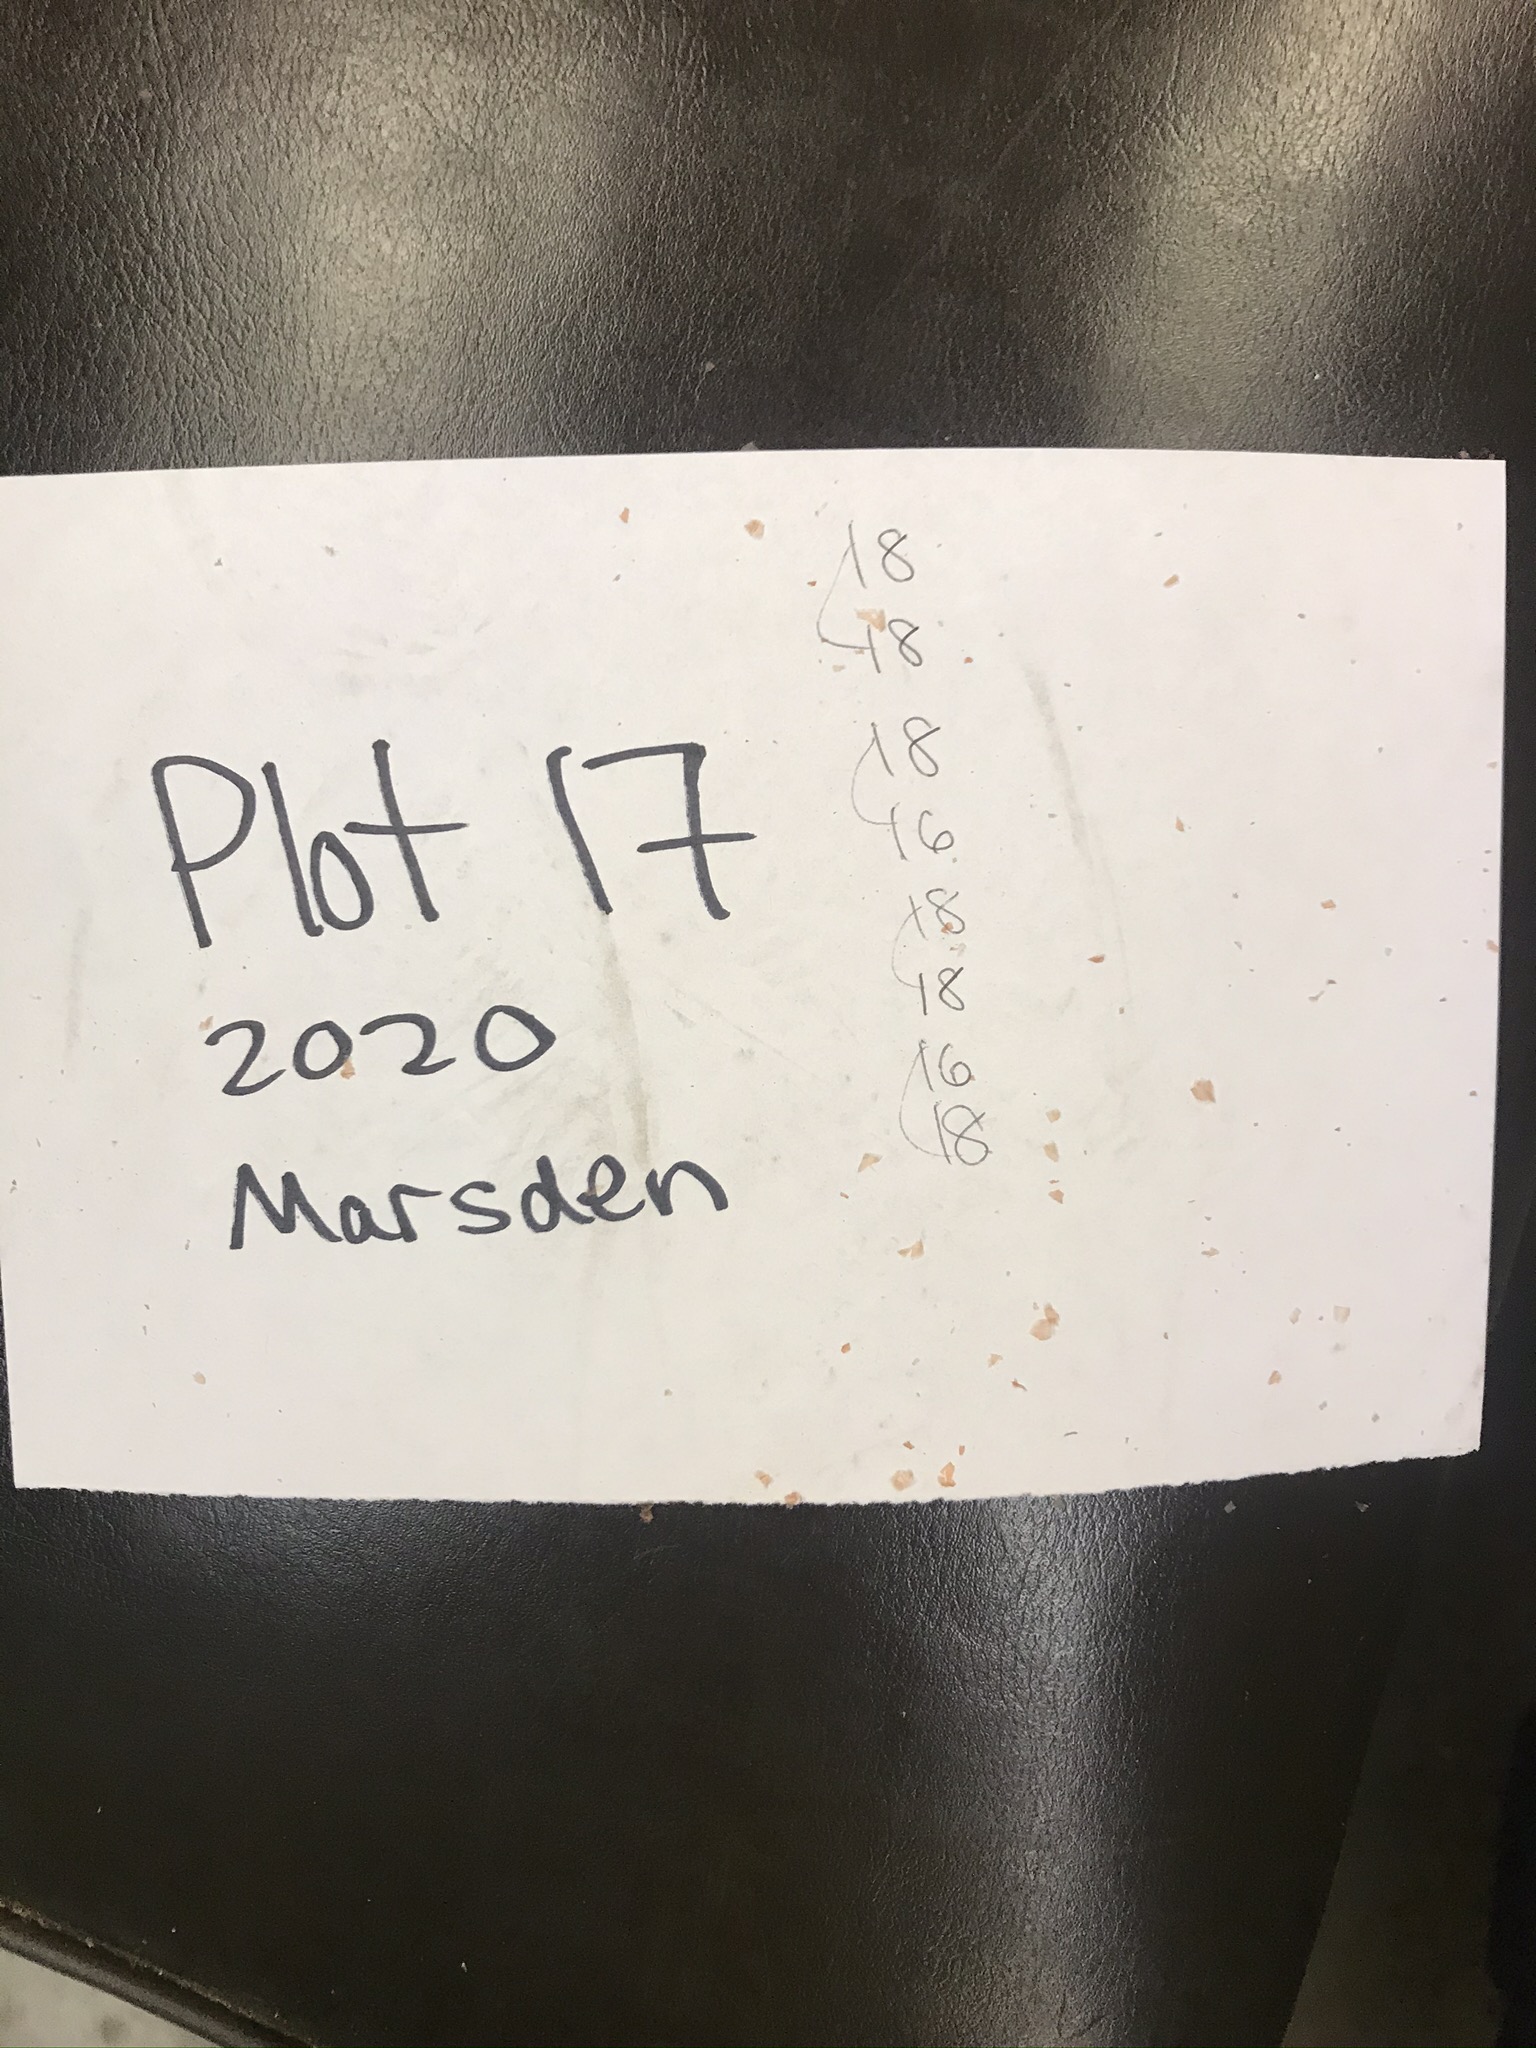 Plot 17
2020
Marsden
18
18
18
16
18
18
16
18